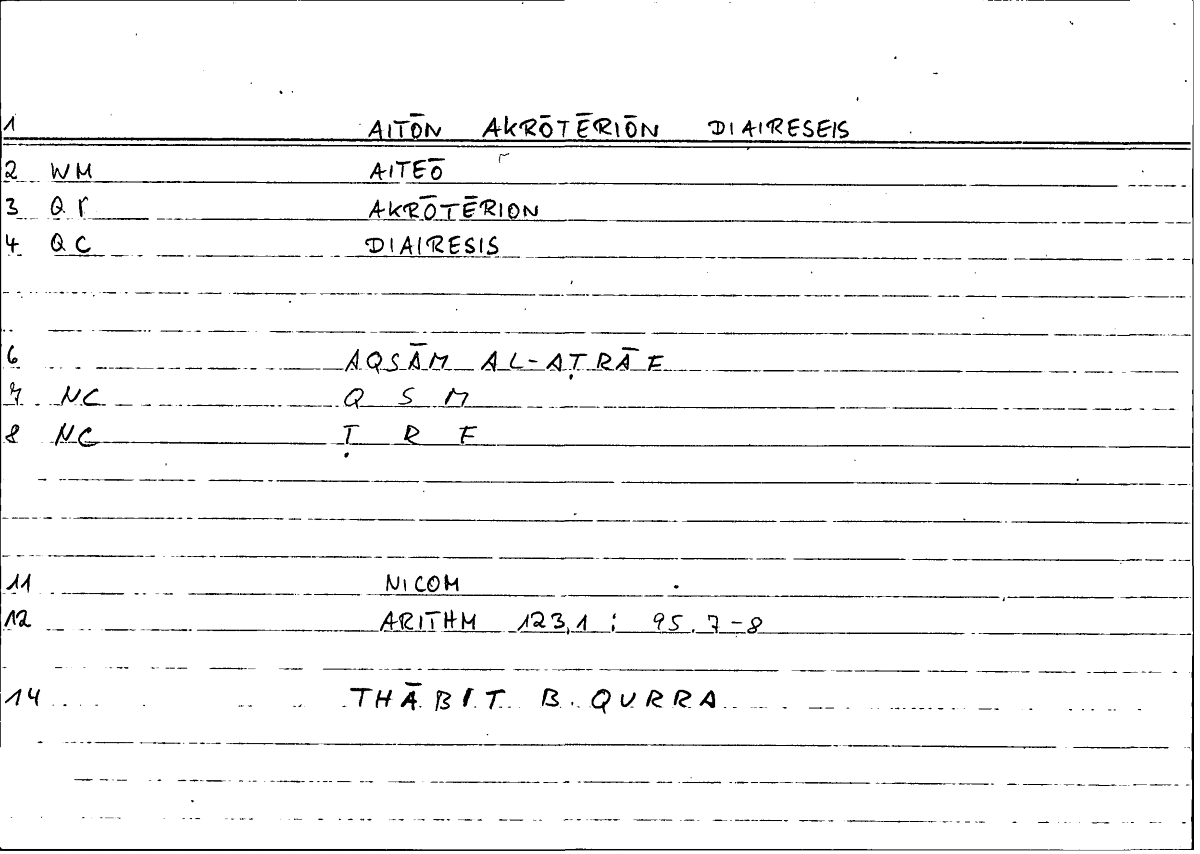 1 AITŌN AKRŌTĒRIŌN DIAIRESEIS
2 WM AITEŌ
3 QΓ AKRŌTĒRION
4 QC DIAIRESIS
6 AQSĀM AL-AṬRĀF
7 NC Q S M
8 NC Ṭ R F
11 NICOM
12 ARITHM 123,1 ; 95.7-8
14 THĀBIT B. QURRA